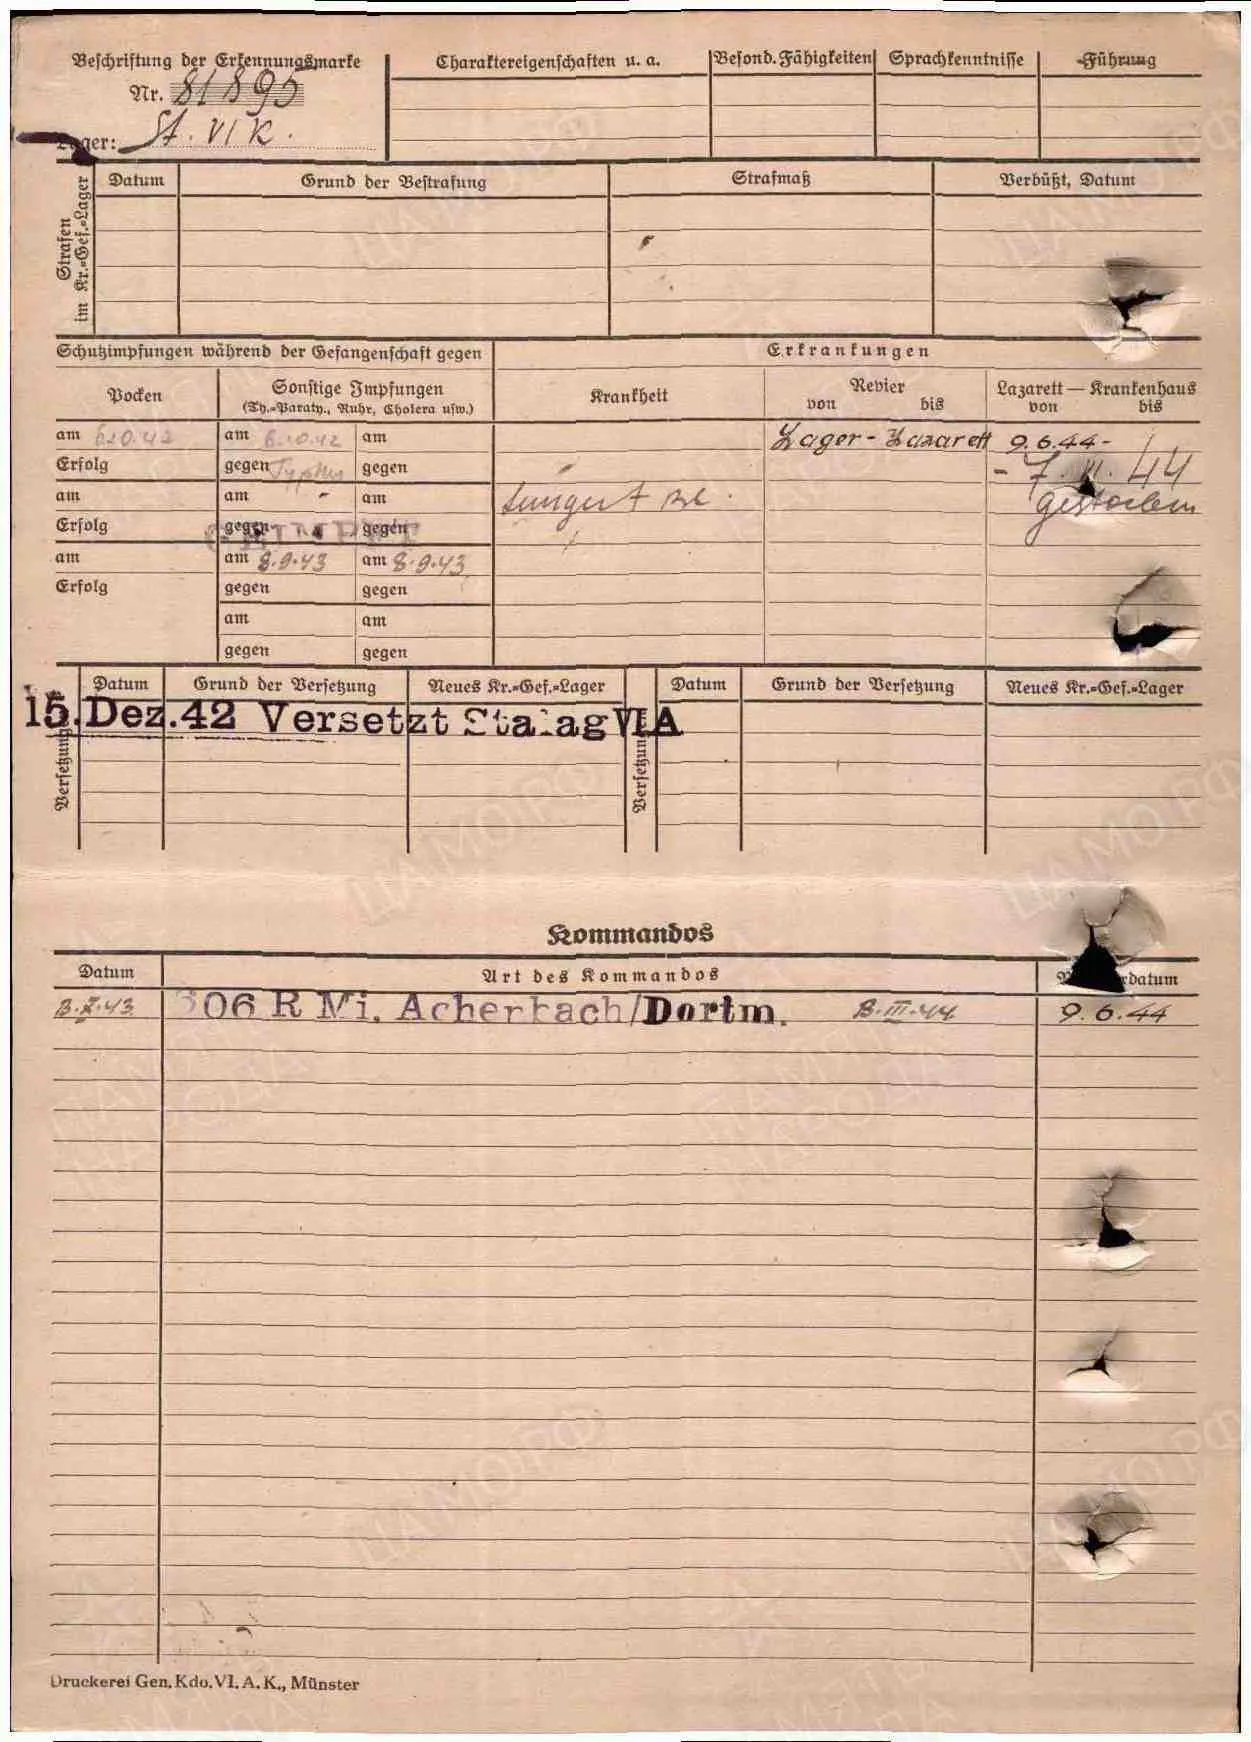 Beschriftung der Erkennungsmarke
Nr. 81895
Lager: St. VI K.
Charaktereigenschaften u. a.
Besond. Fähigkeiten
Sprachkenntnisse
Führung
Strafen im Kr.=Gef.=Lager
Datum
Grund der Bestrafung
Strafmaß
Verbüßt, Datum
Schutzimpfungen während der Gefangenschaft gegen
Erkrankungen
Pocken
Sonstige Impfungen
(Ty.=Paraty., Ruhr, Cholera usw.)
Krankheit
Revier
von bis
Lazarett — Krankenhaus
von bis
am 6.10.42 am 6.10.42 am
Lager-Lazarett 9.6.44-
Erfolg gegen Typhus gegen
- 7. VI. 44
am am am
gestorben
Erfolg gegen gegen
GEIMPFT
am am 8.9.43 am 8.9.43
Erfolg gegen gegen
am am
gegen gegen
Versetzung
Datum
Grund der Versetzung
Neues Kr.=Gef.=Lager
Versetzung
Datum
Grund der Versetzung
Neues Kr.=Gef.=Lager
15. Dez. 42 Versetzt Stalag VI A
Kommandos
Datum
Art des Kommandos
rdatum
306 R Mi. Achenbach/Dortm. 8.III.44 9.6.44
Druckerei Gen. Kdo. VI. A. K., Münster
ЦАМО РФ
ПАМЯТЬ НАРОДА